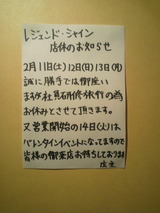 レジェンド・シャイン
店休のお知らせ
2月11日(土)12日(日)13日(月)
誠に勝手では御座い
ますが社員研修旅行の為
お休みとさせて頂きます。
又営業開始の14日(火)は
バレンタインイベントになってますので
皆様の御来店お待ちしております
店主